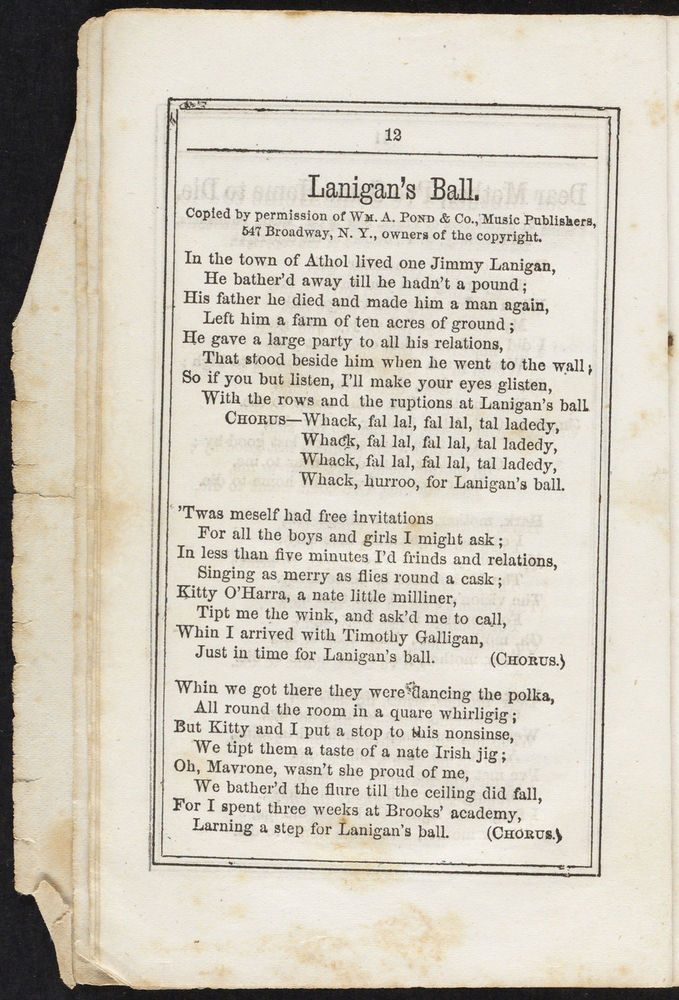 12
Lanigan's Ball.
Copied by permission of WM. A. POND & Co., Music Publishers,
547 Broadway, N. Y., owners of the copyright.
In the town of Athol lived one Jimmy Lanigan,
He bather'd away till he hadn't a pound;
His father he died and made him a man again,
Left him a farm of ten acres of ground;
He gave a large party to all his relations,
That stood beside him when he went to the wall;
So if you but listen, I'll make your eyes glisten,
With the rows and the ruptions at Lanigan's ball.
CHORUS—Whack, fal lal, fal lal, tal ladedy,
Whack, fal lal, fal lal, tal ladedy,
Whack, fal lal, fal lal, tal ladedy,
Whack, hurroo, for Lanigan's ball.
'Twas meself had free invitations
For all the boys and girls I might ask;
In less than five minutes I'd frinds and relations,
Singing as merry as flies round a cask;
Kitty O'Harra, a nate little milliner,
Tipt me the wink, and ask'd me to call,
Whin I arrived with Timothy Galligan,
Just in time for Lanigan's ball. (CHORUS.)
Whin we got there they were dancing the polka,
All round the room in a quare whirligig;
But Kitty and I put a stop to this nonsinse,
We tipt them a taste of a nate Irish jig;
Oh, Mavrone, wasn't she proud of me,
We bather'd the flure till the ceiling did fall,
For I spent three weeks at Brooks' academy,
Larning a step for Lanigan's ball. (CHORUS.)